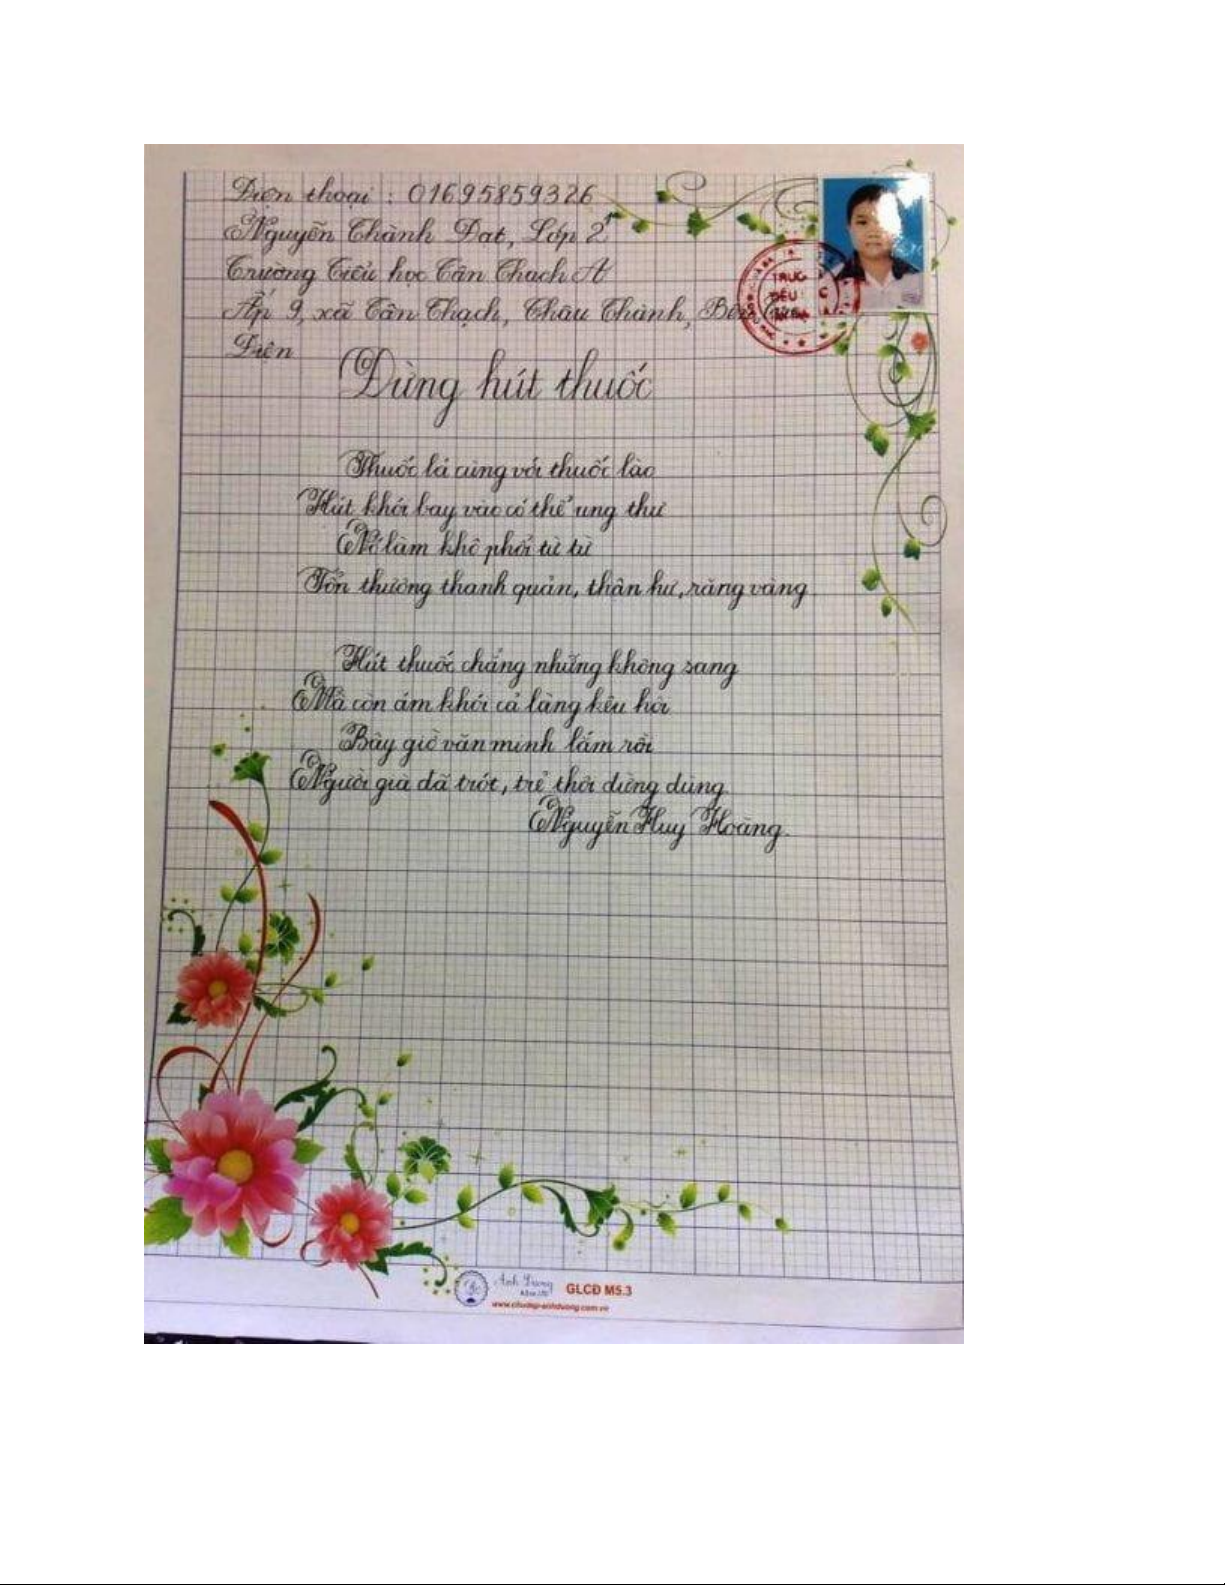 Điện thoại : 01695859326
Nguyễn Thành Đạt, Lớp 2¹
Trường Tiểu học Tân Thạch A
Ấp 9, xã Tân Thạch, Châu Thành, Bến
Điện
Đừng hút thuốc
Thuốc lá cùng với thuốc lào
Hút khói bay vào có thể ung thư
Nó làm khô phổi từ từ
Tổn thương thanh quản, thân hư, răng vàng
Hút thuốc chẳng những không sang
Mà còn ám khói cả làng kêu hôi
Bây giờ văn minh lắm rồi
Người già đã trót, trẻ thời đừng dùng.
Nguyễn Huy Hoàng.
GLCĐ M5.3
www.chudep-anhduong.com.vn